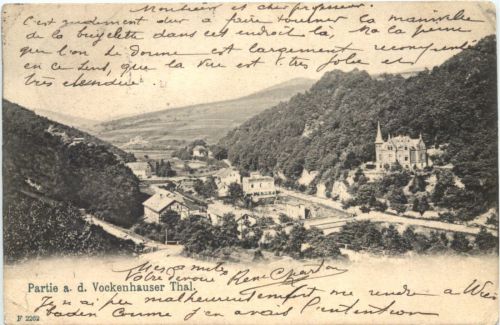 Monsieur et cher professeur.
C'est gudement dur à faire tourner la manivelle
de la bicyclette dans cet endroit là, Mais la peine
que l'on se donne est largement récompensée
en ce sens, que la vue est très jolie et
très étendue.
Partie a. d. Vockenhauser Thal.
Mes amitiés
Votre dévoué René
J'ai pu malheureusement me rendre à Wies
baden comme j'en avais l'intention
F 2262